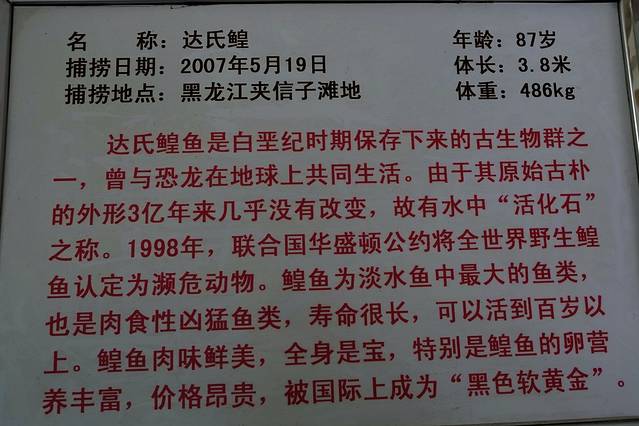 名　　称：达氏鳇　　年龄：87岁
捕捞日期：2007年5月19日　　体长：3.8米
捕捞地点：黑龙江夹信子滩地　　体重：486kg
达氏鳇鱼是白垩纪时期保存下来的古生物群之
一，曾与恐龙在地球上共同生活。由于其原始古朴
的外形3亿年来几乎没有改变，故有水中“活化石”
之称。1998年，联合国华盛顿公约将全世界野生鳇
鱼认定为濒危动物。鳇鱼为淡水鱼中最大的鱼类，
也是肉食性凶猛鱼类，寿命很长，可以活到百岁以
上。鳇鱼肉味鲜美，全身是宝，特别是鳇鱼的卵营
养丰富，价格昂贵，被国际上成为“黑色软黄金”。